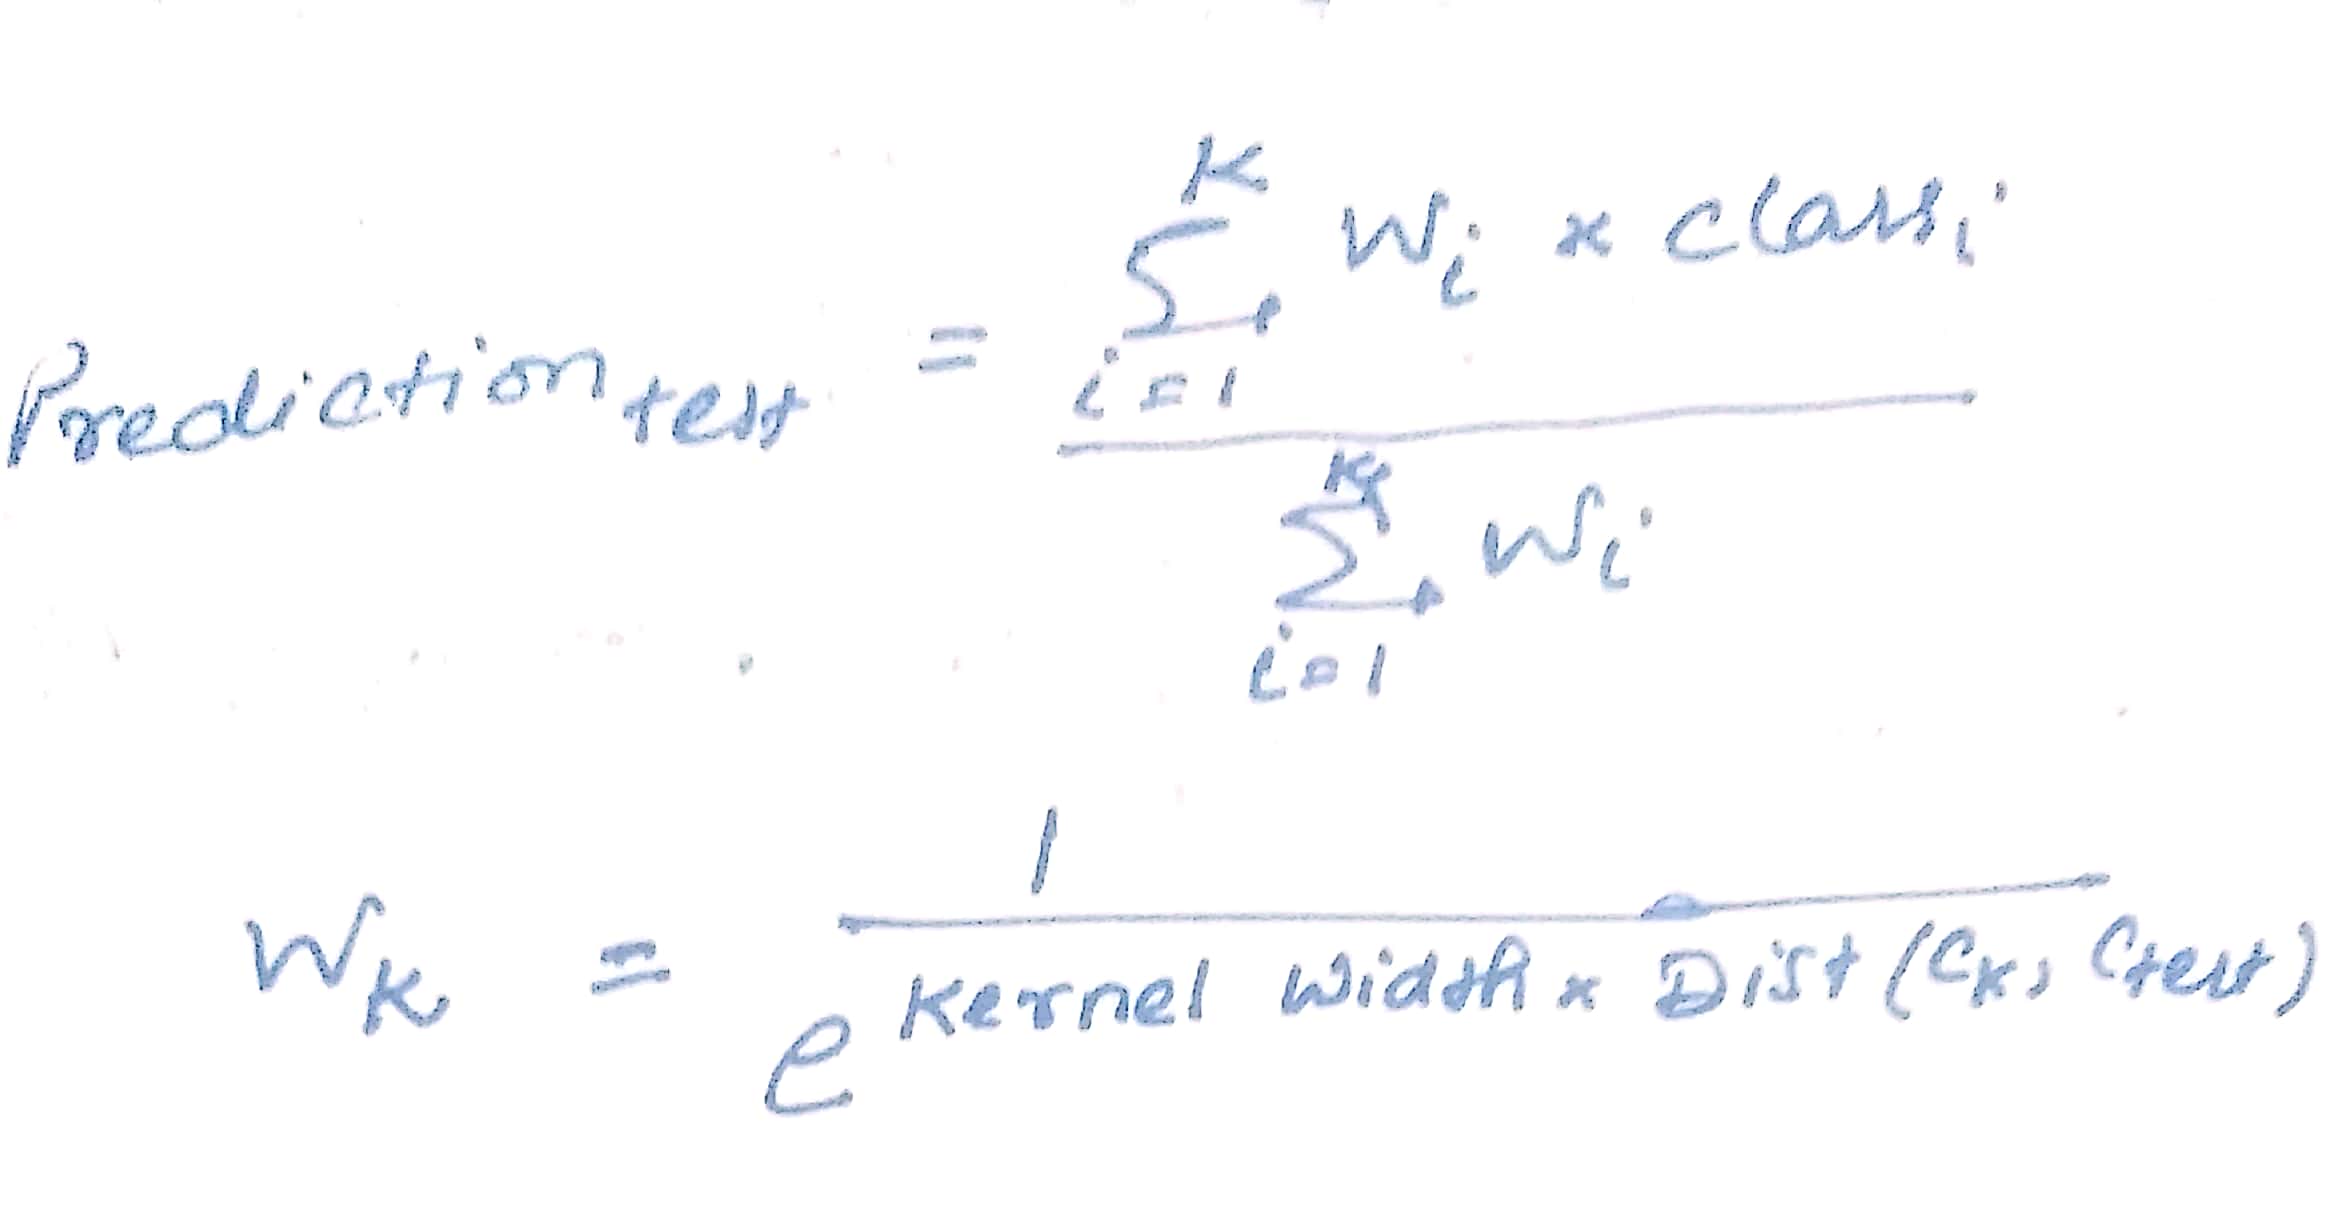 Prediction_test = \frac{\sum_{i=1}^{K} W_i * class_i}{\sum_{i=1}^{K} W_i}
W_K = \frac{1}{e^{Kernel Width * Dist(C_K, C_test)}}